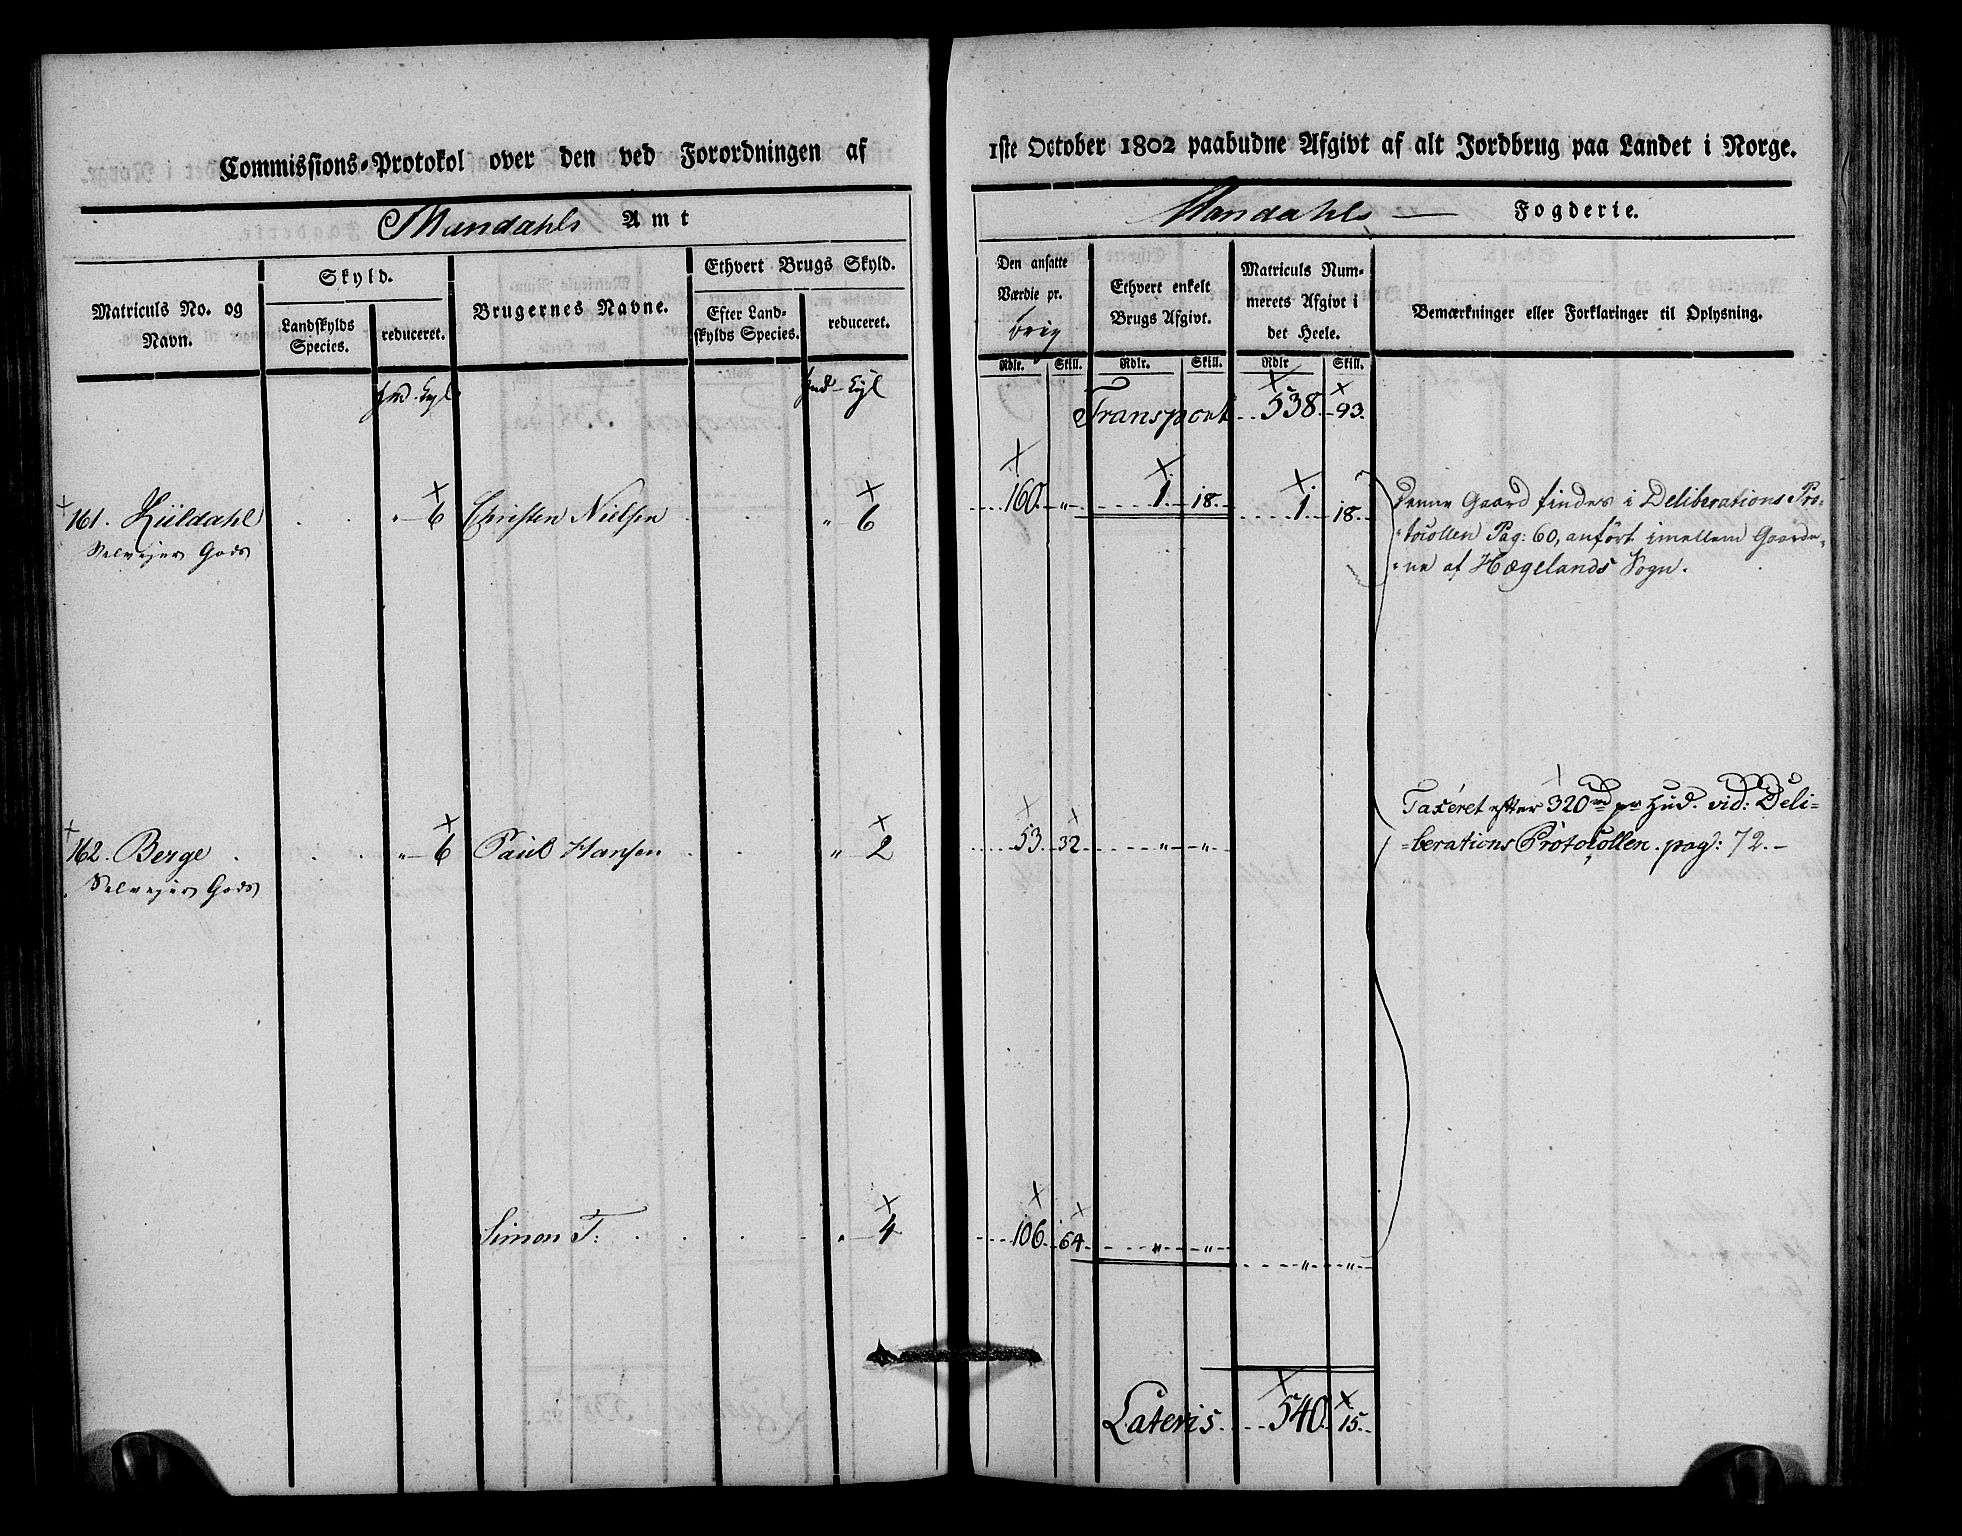 Commissions-Protokol over den ved Forordningen af 1ste October 1802 paabudne Afgivt af alt Jordbrug paa Landet i Norge.
Mandahls Amt
Mandahls Fogderie.
Matriculs No. og Navn.
Skyld.
Landskylds Species.
reduceret.
Brugernes Navne.
Ethvert Brugs Skyld.
Efter Landskylds Species.
reduceret.
Den ansatte Værdie pr.
Ethvert enkelt Brugs Afgivt.
Matriculs Nummerets Afgivt i det Heele.
Bemærkninger eller Forklaringer til Oplysning.
Rdlr. Skill. Rdlr. Skill. Rdlr Skill.
Hud - Kgl
Hud - Kgl
Transport 538. 93.
161. Kiildahl " 6 Christen Nielsen " 6 160. " 1. 18. 1. 18.
Selvejer Gods
Denne Gaard findes i Deliberations Pro-
tocollen Pag: 60, anført imellem Gaarde-
ne af Hægelands Sogn.
162. Berge " 6 Paul Hansen " 2 53. 32 " "
Selvejer Gods
Taxeret efter 320 rd pr Hud. vid: Deli-
=berations Protocollen. pag: 72.
Simon T: " 4 106. 64 " "
" "
Lateris 540. 15.